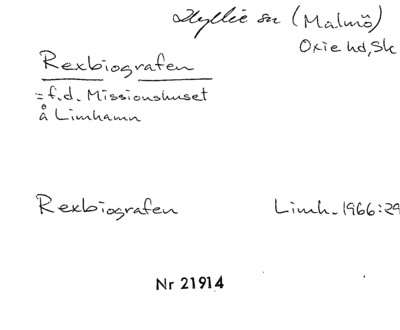 Hyllie sn (Malmö)
Oxie hd, Sk
Rexbiografen
= f.d. Missionshuset
å Limhamn
Rexbiografen Limh. 1966:29
Nr 21914